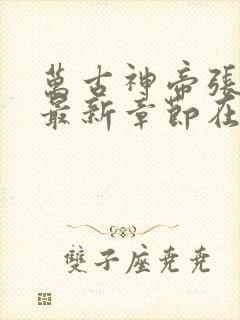 萬古神帝張
最新章節在
雙子座堯堯